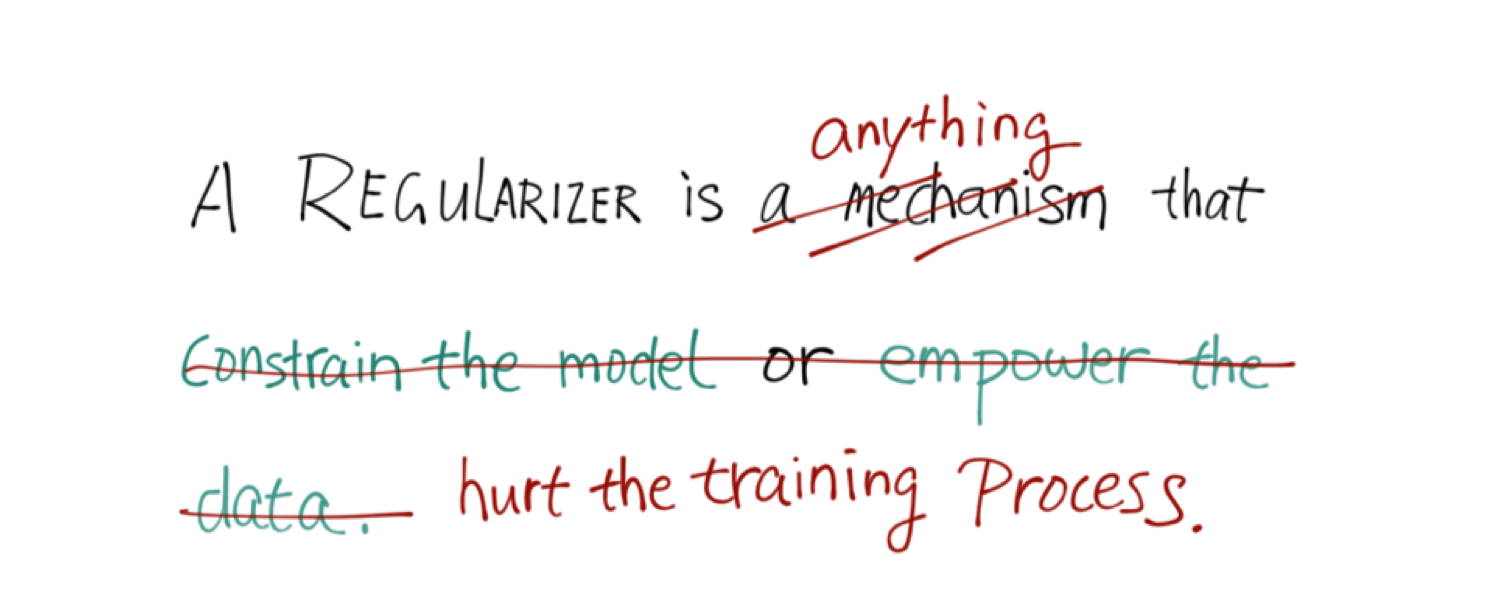 anything
A REGULARIZER is a mechanism that
Constrain the model or empower the
data. hurt the training Process.